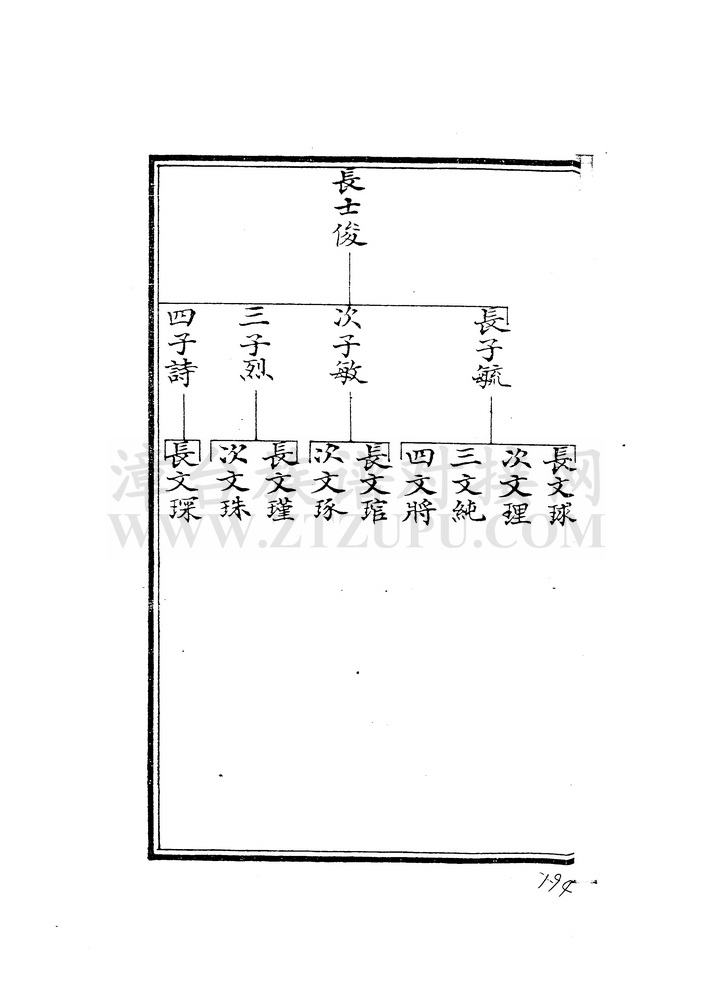 長士俊
長子毓
次子敏
三子烈
四子詩
長文球
次文理
三文純
四文將
長文琯
次文琢
長文瑾
次文珠
長文琛
漳台族谱对接网
WWW.ZTZUPU.COM
194